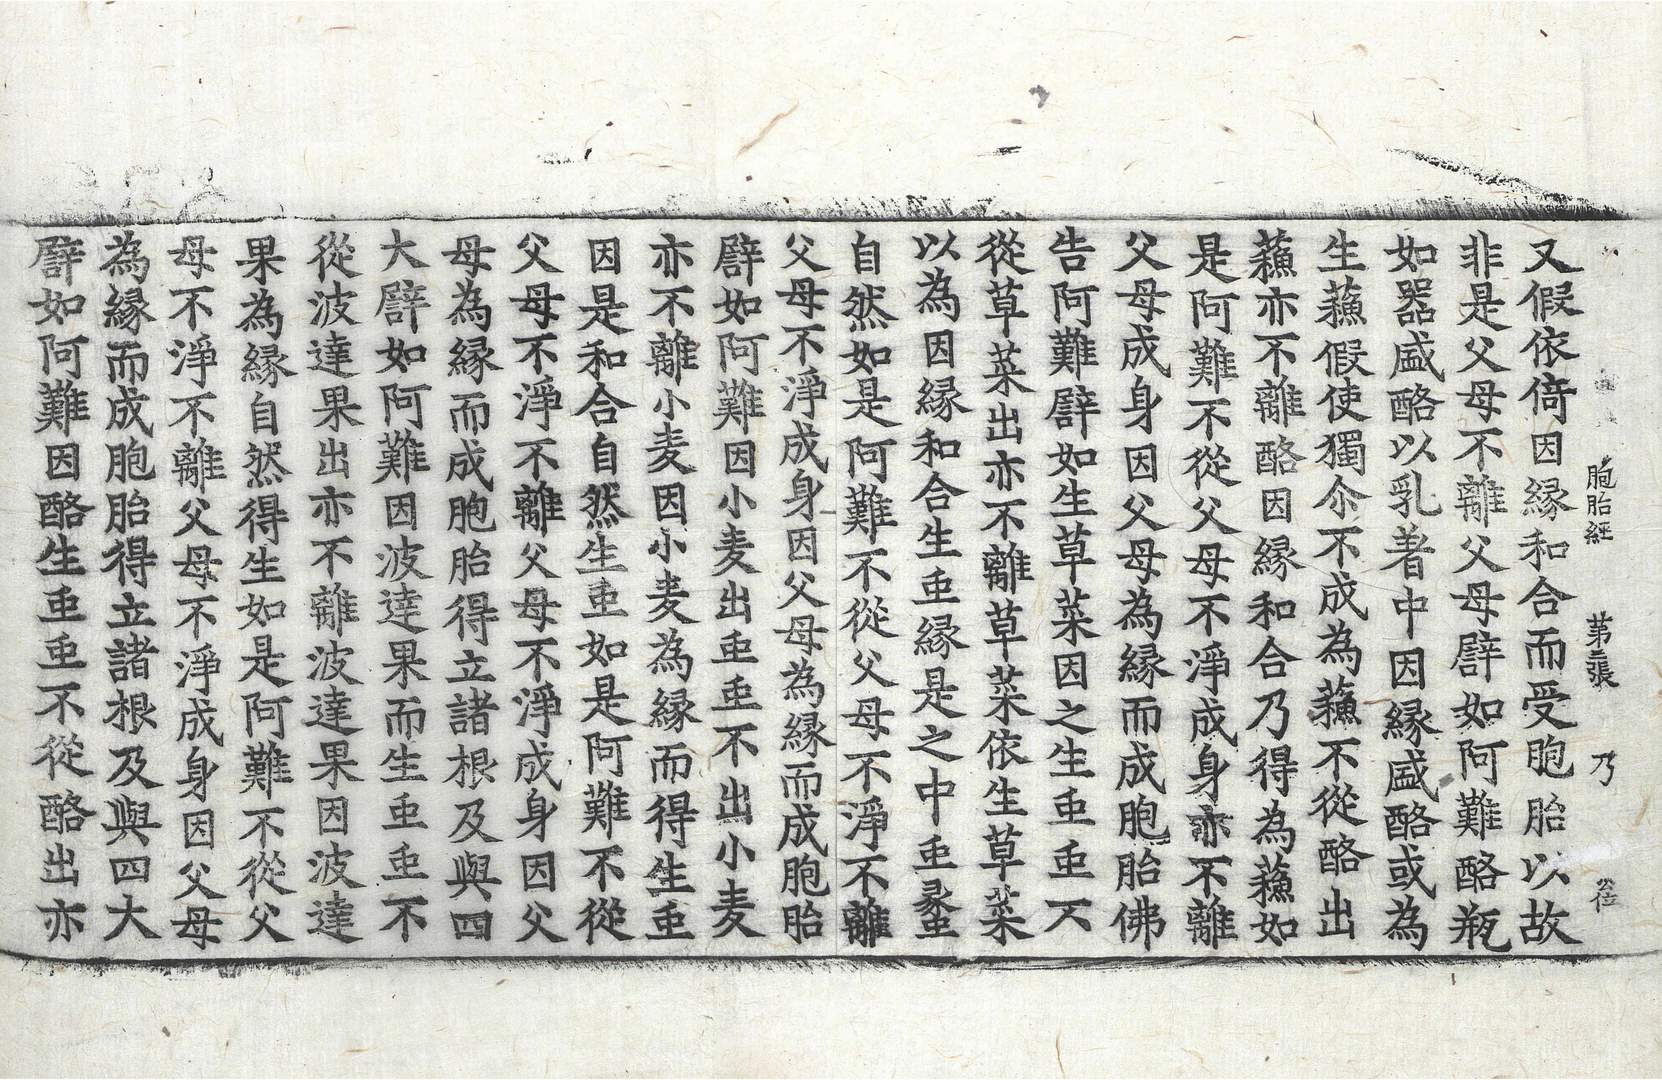 胞胎經 第二張 乃 公位
又假依倚因縁和合而受胞胎以故
非是父母不離父母譬如阿難酪瓶
如器盛酪以乳著中因縁盛酪或為
生蘓假使獨尒不成為蘓不從酪出
蘓亦不離酪因縁和合乃得為蘓如
是阿難不從父母不淨成身亦不離
父母成身因父母為縁而成胞胎佛
告阿難譬如生草菜因之生虫虫不
從草菜出亦不離草菜依生草菜
以為因縁和合生虫縁是之中虫蟸
自然如是阿難不從父母不淨不離
父母不淨成身因父母為縁而成胞胎
譬如阿難因小麦出虫虫不出小麦
亦不離小麦因小麦為縁而得生虫
因是和合自然生虫如是阿難不從
父母不淨不離父母不淨成身因父
母為縁而成胞胎得立諸根及與四
大譬如阿難因波達果而生虫虫不
從波達果出亦不離波達果因波達
果為縁自然得生如是阿難不從父
母不淨不離父母不淨成身因父母
為縁而成胞胎得立諸根及與四大
譬如阿難因酪生虫虫不從酪出亦